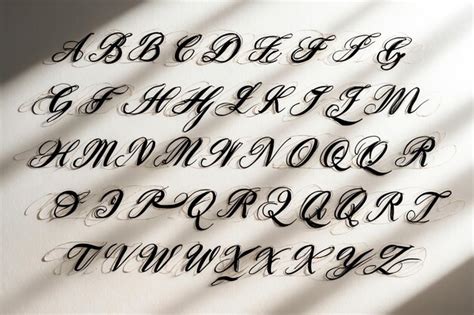 A B B C D E F I G
G F H H L K I L M
H M N M M N O Q Q R
O I P Q R Q Q R T
T V V W W X X X Y Z